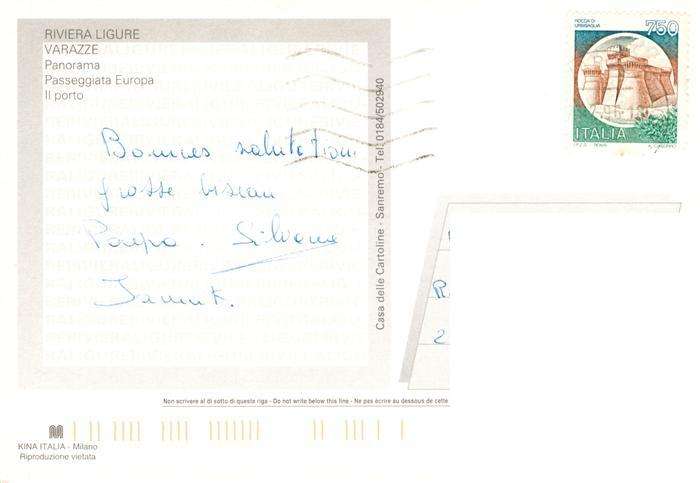 RIVIERA LIGURE
VARAZZE
Panorama
Passeggiata Europa
Il porto
Bonnes salutations
grosse biseau
Papa . Silvana
Casa delle Cartoline - Sanremo - Tel. 0184/502940
ROCCA DI
URBISAGLIA
750
ITALIA
I.P.Z.S. ROMA
2
Non scrivere al di sotto di questa riga - Do not write below this line - Ne pas écrire au dessous de cette
KINA ITALIA - Milano
Riproduzione vietata